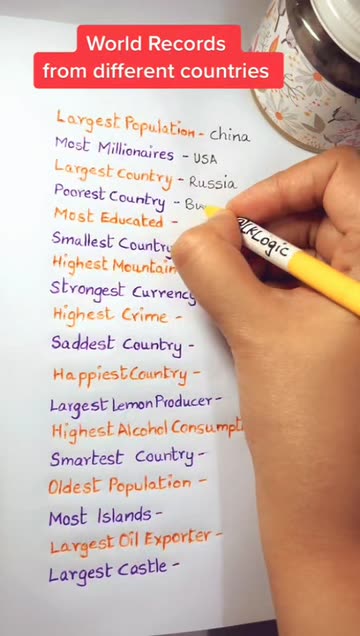 World Records
from different countries
Largest Population - China
Most Millionaires - USA
Largest Country - Russia
Poorest Country - Bu
Most Educated -
Smallest Country
Highest Mountain
Strongest Currency
Highest Crime -
Saddest Country -
Happiest Country -
Largest Lemon Producer -
Highest Alcohol Consumpt
Smartest Country -
Oldest Population -
Most Islands -
Largest Oil Exporter -
Largest Castle -